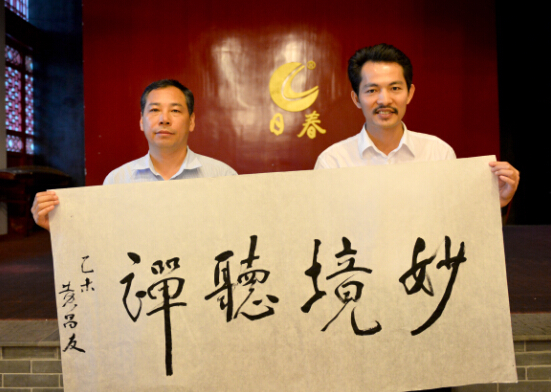 ®
日春
妙境聽禪
乙未
黄昌友